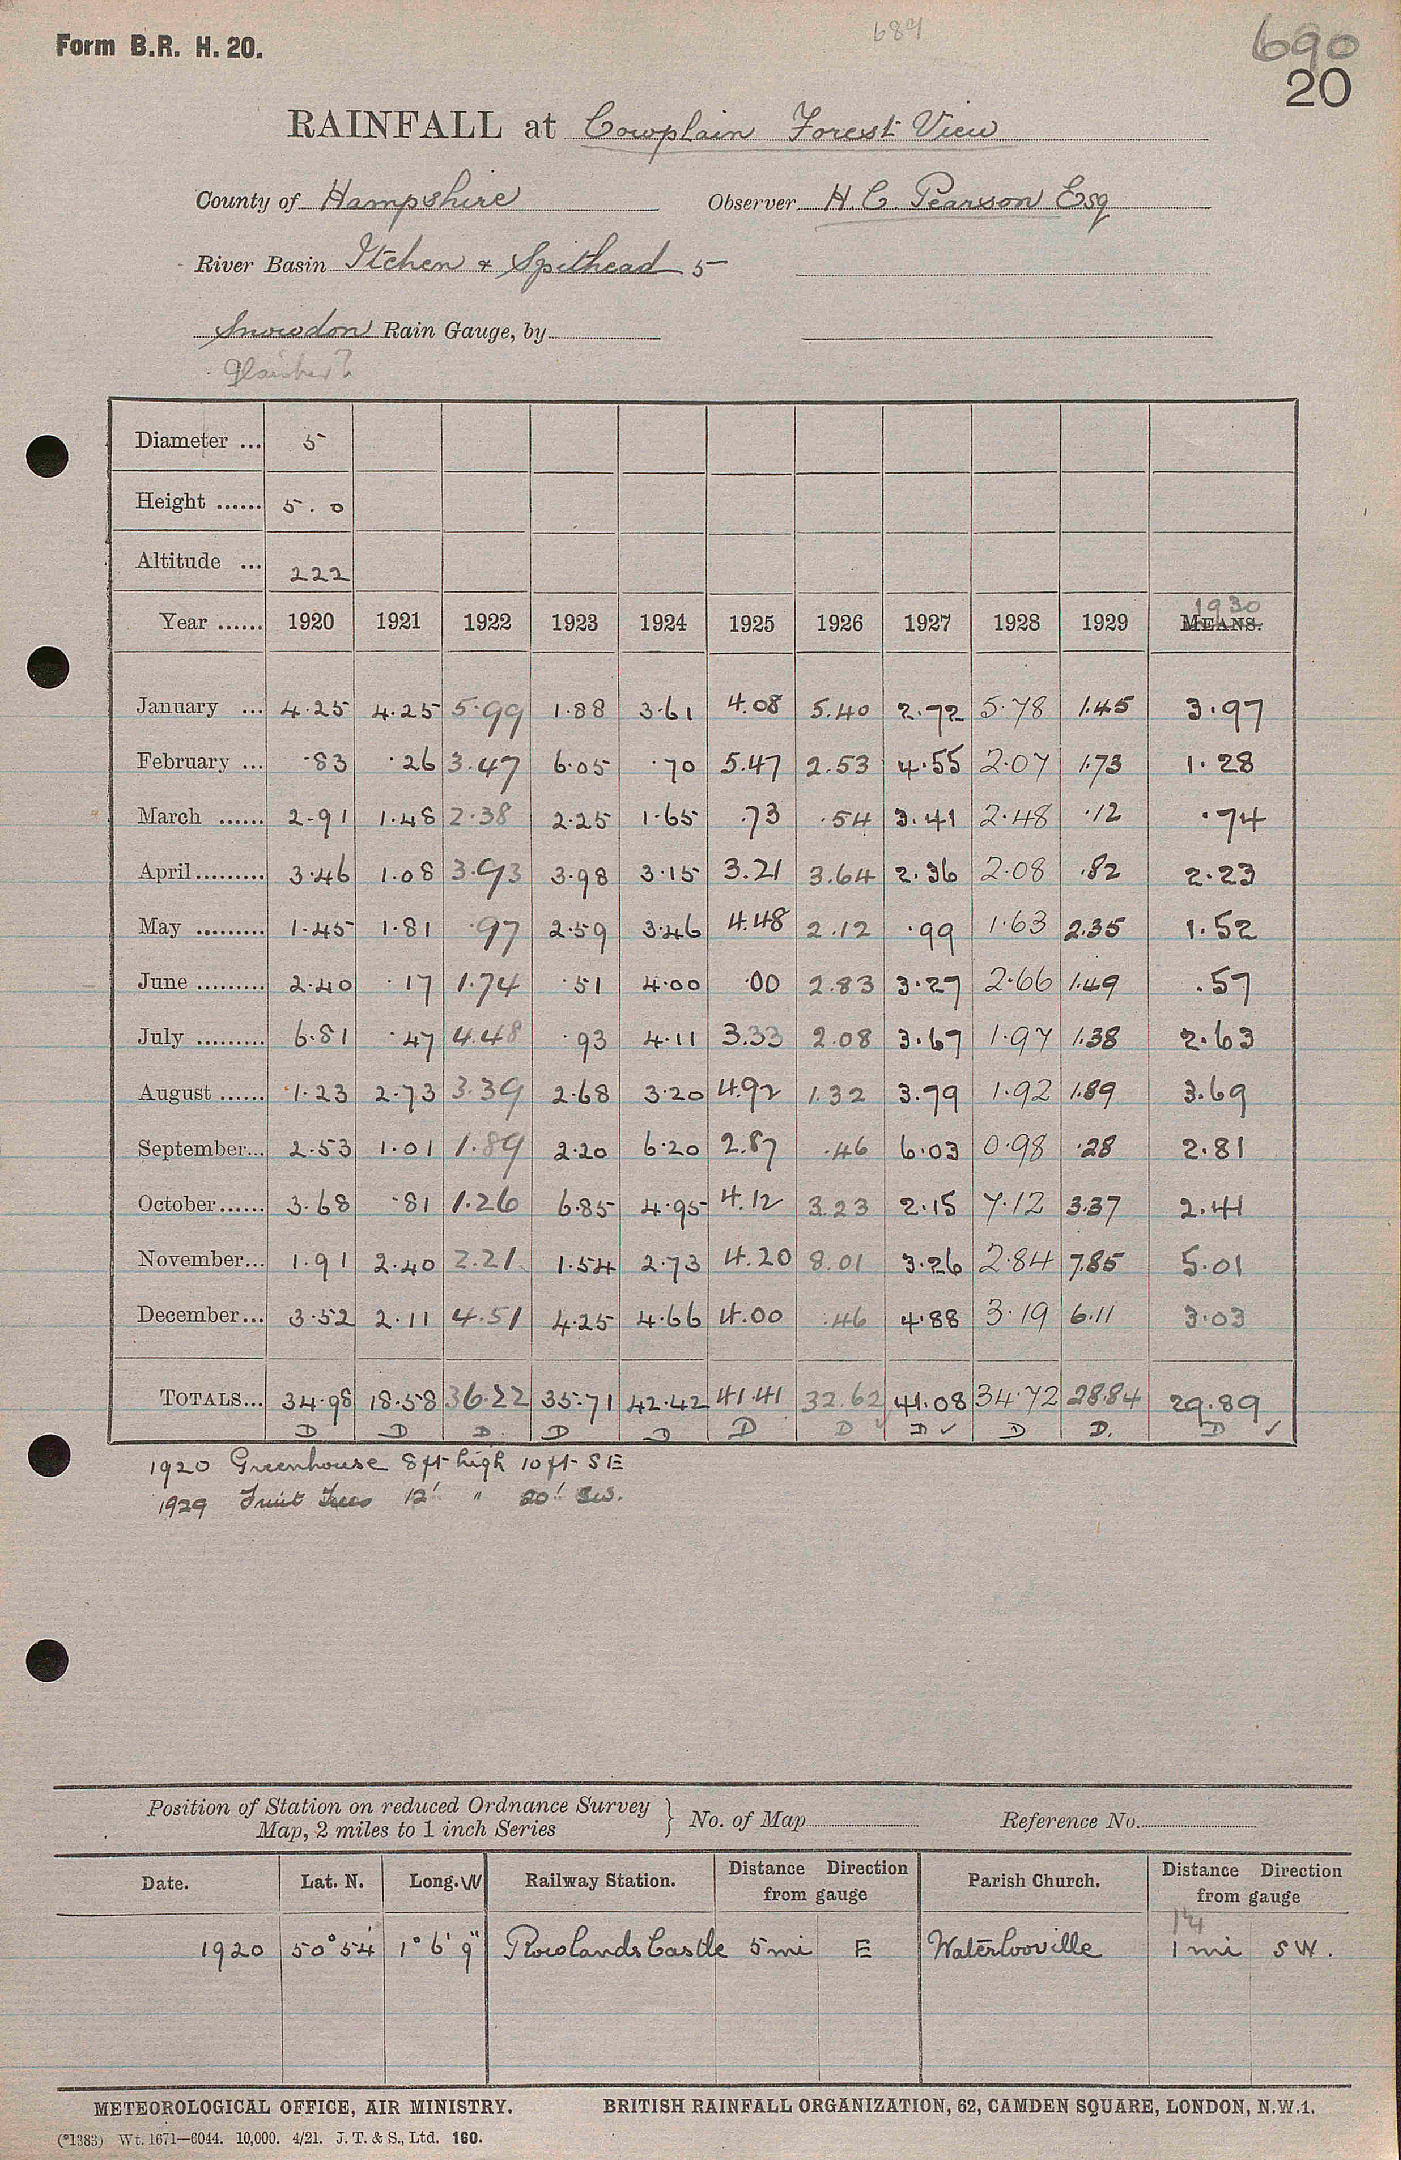 Form B.R. H. 20.
689
690
20
RAINFALL at Cowplain Forest View
County of Hampshire Observer H. C. Pearson Esq
River Basin Itchen + Spithead 5
Snowdon Rain Gauge, by
Diameter ... 5
Height ...... 5.0
Altitude ... 222
Year ...... 1920 1921 1922 1923 1924 1925 1926 1927 1928 1929 MEANS. 1930
January ... 4.25 4.25 5.99 1.88 3.61 4.08 5.40 2.72 5.78 1.45 3.97
February ... .83 .26 3.47 6.05 .70 5.47 2.53 4.55 2.07 1.73 1.28
March ...... 2.91 1.48 2.38 2.25 1.65 .73 .54 3.41 2.48 .12 .74
April ......... 3.46 1.08 3.93 3.98 3.15 3.21 3.64 2.36 2.08 .82 2.23
May ......... 1.45 1.81 .97 2.59 3.46 4.48 2.12 .99 1.63 2.35 1.52
June ......... 2.40 .17 1.74 .51 4.00 .00 2.83 3.27 2.66 1.49 .57
July ......... 6.81 .47 4.48 .93 4.11 3.33 2.08 3.67 1.97 1.38 2.63
August ...... 1.23 2.73 3.39 2.68 3.20 4.92 1.32 3.79 1.92 1.89 3.69
September... 2.53 1.01 1.89 2.20 6.20 2.87 .46 6.03 0.98 .28 2.81
October ...... 3.68 .81 1.26 6.85 4.95 4.12 3.23 2.15 7.12 3.37 2.41
November... 1.91 2.40 2.21 1.54 2.73 4.20 8.01 3.26 2.84 7.85 5.01
December... 3.52 2.11 4.51 4.25 4.66 4.00 .46 4.88 3.19 6.11 3.03
TOTALS... 34.98 18.58 36.22 35.71 42.42 41.41 32.62 41.08 34.72 28.84 29.89
D D D. D D D D ✓ D ✓ D D. D ✓
1920 Greenhouse 8 ft high 10 ft SE
1929 Fruit Trees 12' " 20' SW.
Position of Station on reduced Ordnance Survey
Map, 2 miles to 1 inch Series } No. of Map Reference No.
Date. Lat. N. Long. W Railway Station. Distance Direction from gauge Parish Church. Distance Direction from gauge
1¼
1920 50° 54' 1° 6' 9" Rowlands Castle 5 mi E Waterlooville 1 mi SW.
METEOROLOGICAL OFFICE, AIR MINISTRY. BRITISH RAINFALL ORGANIZATION, 62, CAMDEN SQUARE, LONDON, N.W.1.
(*1383) Wt. 1671—6044. 10,000. 4/21. J. T. & S., Ltd. 160.